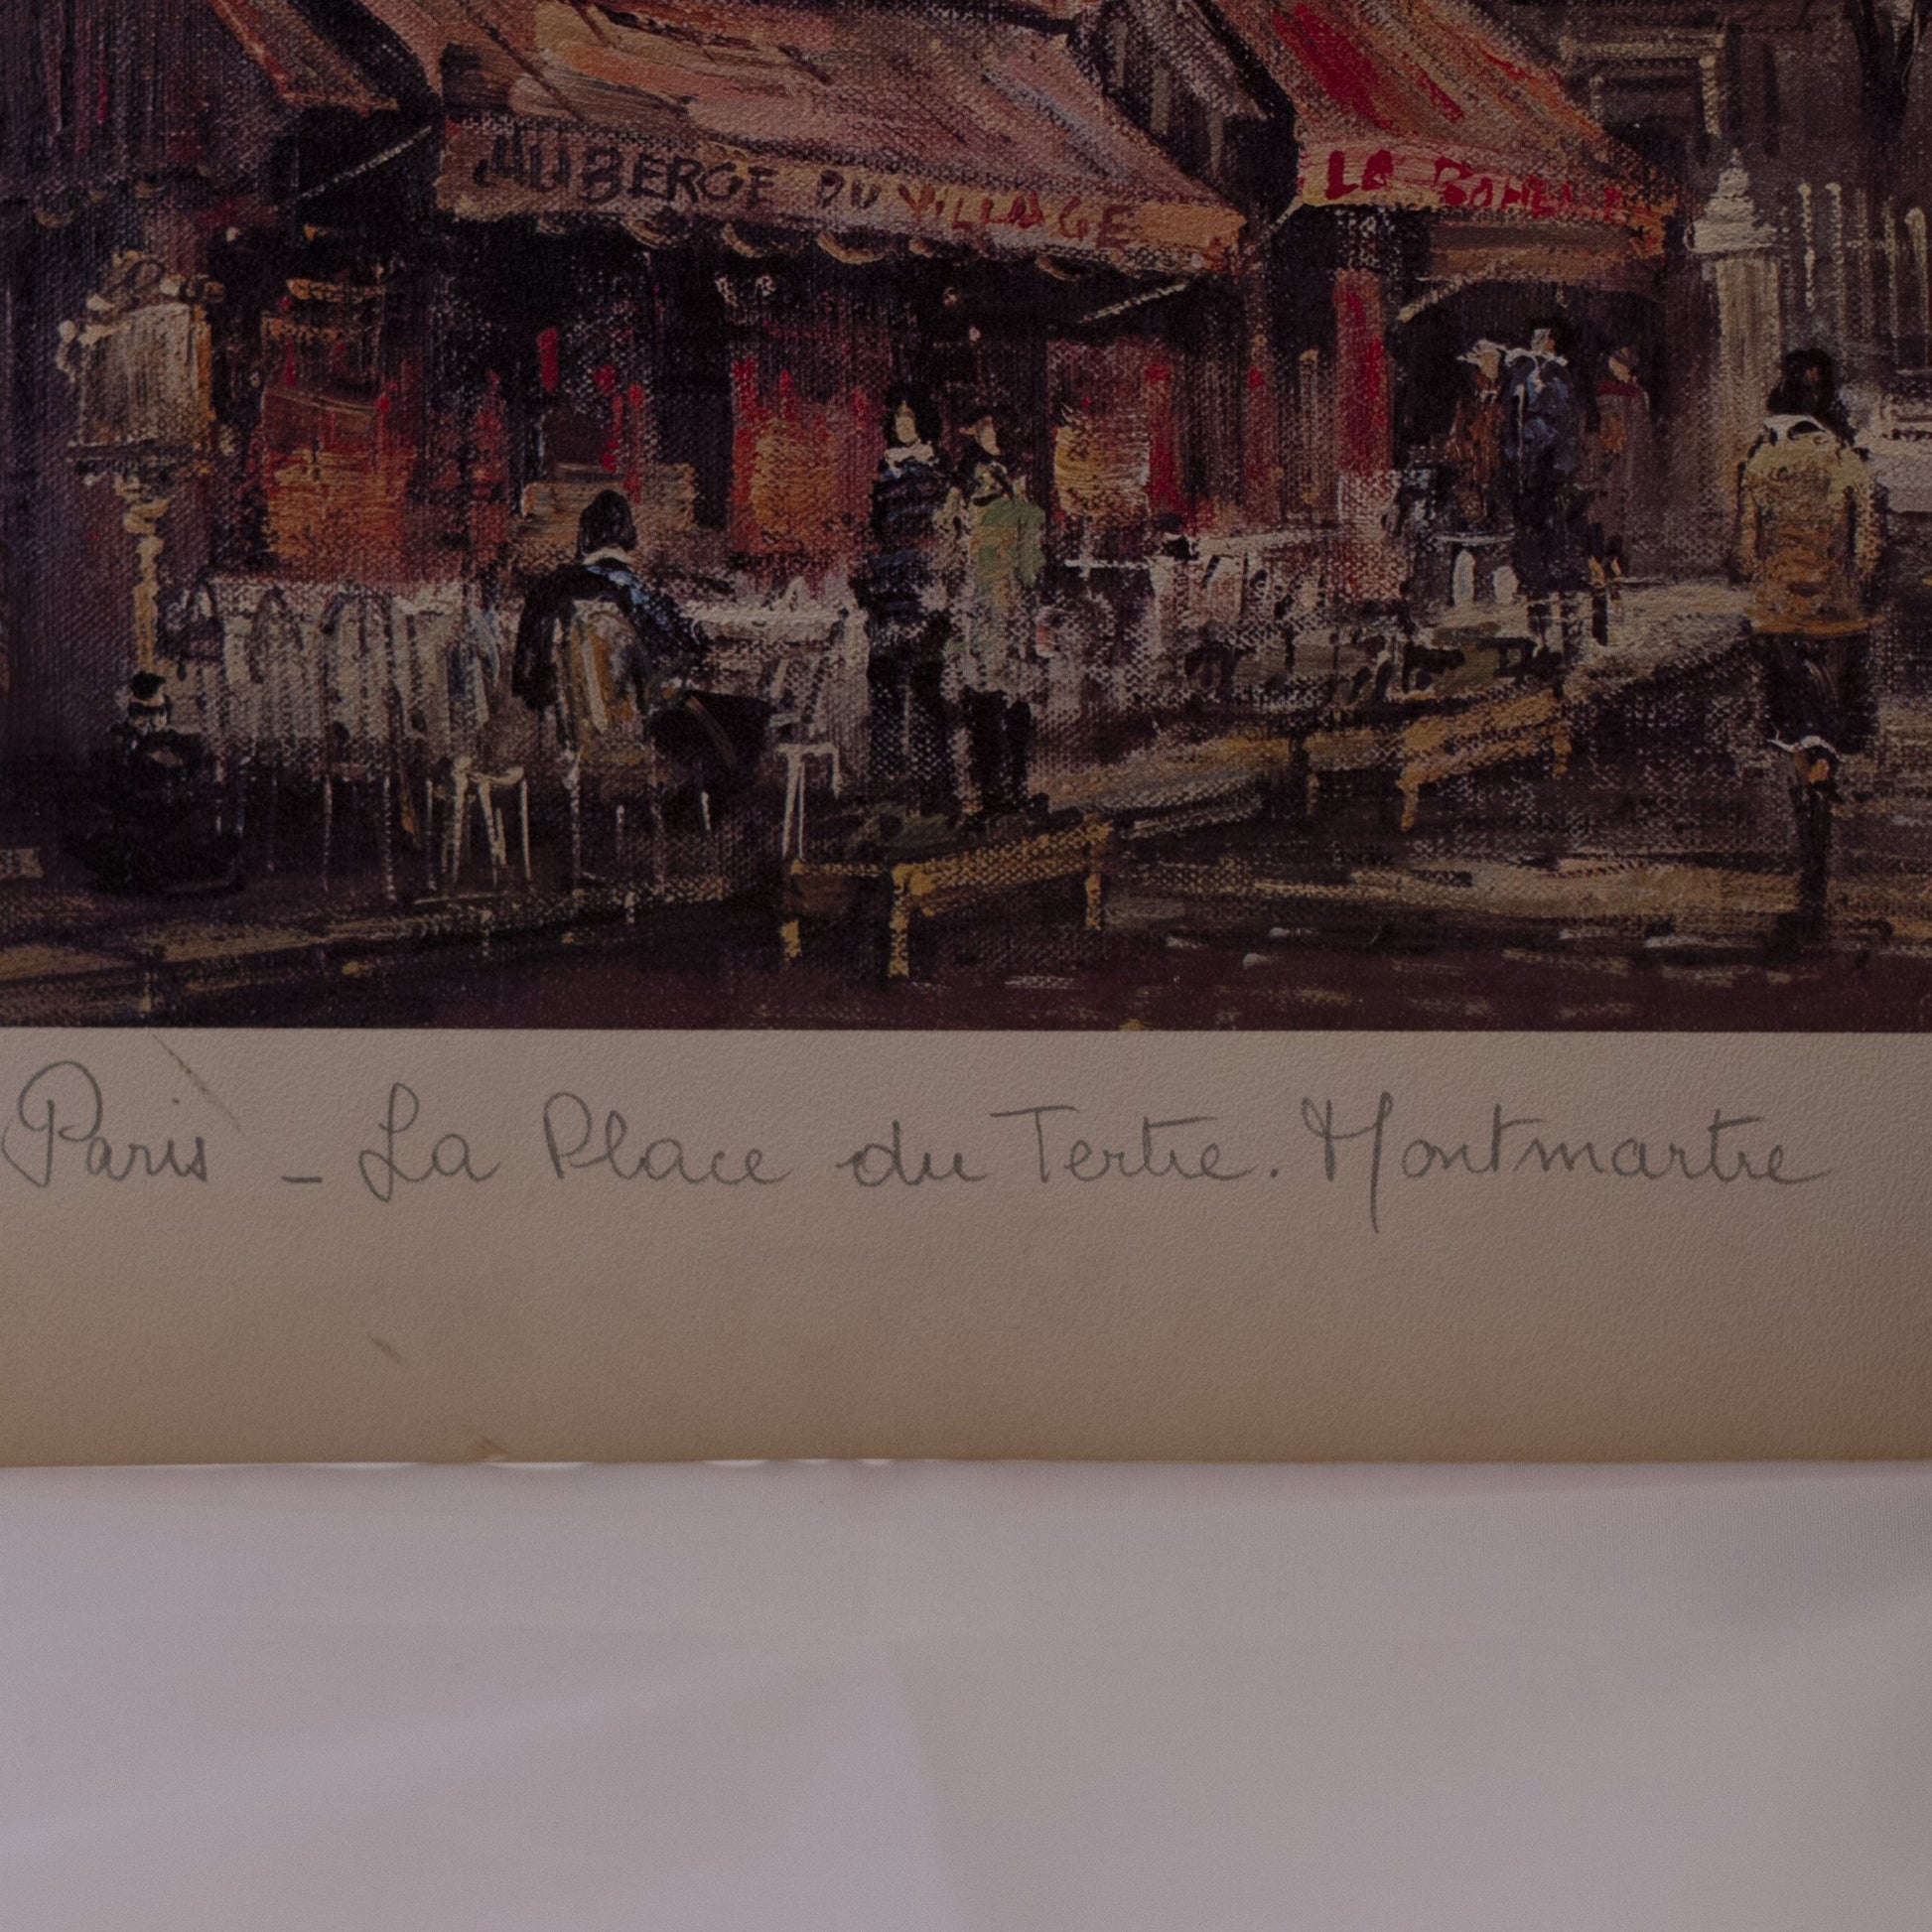 AUBERGE DU VILLAGE
LA BOHEME
Paris - La Place du Tertre. Montmartre